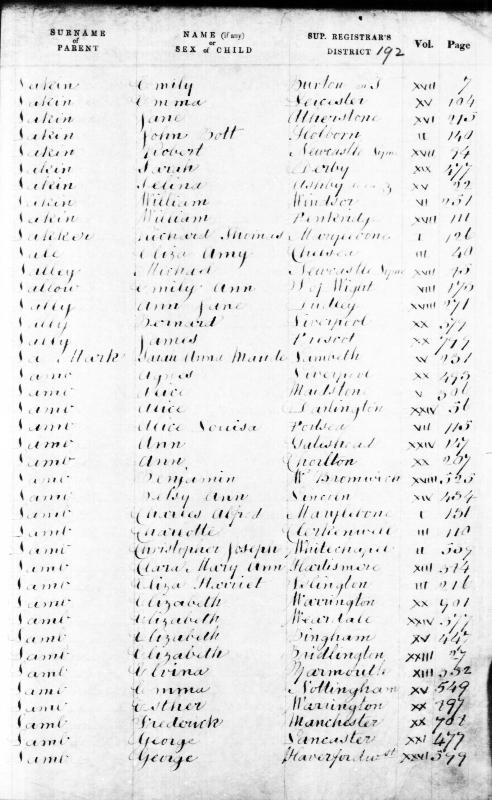 SURNAME of PARENT NAME (if any) or SEX of CHILD SUP. REGISTRAR'S DISTRICT 192 Vol. Page
Lakin Emily Burton on T XVII 7
Lakin Emma Leicester XV 104
Lakin Jane Atherstone XVI 215
Lakin John Bott Holborn II 140
Lakin Robert Newcastle Lyme XVII 74
Lakin Sarah Derby XIX 477
Lakin Selina Ashby XV 22
Lakin William Windsor VI 231
Lakin William Penkridge XVII 111
Lakker Richard Thomas Marylebone I 126
Lale Eliza Amy Chelsea III 40
Lalley Michael Newcastle Lyme XVII 75
Lallow Emily Ann I of Wight VIII 175
Lally Ann Jane Dudley XVIII 271
Lally Bernard Liverpool XX 377
Lally James Prescot XX 749
La Mark Susan Anna Maude Lambeth IV 231
Lamb Agnes Liverpool XX 495
Lamb Alice Maidstone V 306
Lamb Alice Darlington XXIV 56
Lamb Alice Louisa Portsea VII 115
Lamb Ann Gateshead XXIV 147
Lamb Ann Chorlton XX 207
Lamb Benjamin W Bromwich XVIII 525
Lamb Betsy Ann Lincoln XIV 434
Lamb Charles Alfred Marylebone I 131
Lamb Charlotte Clerkenwell III 110
Lamb Christopher Joseph Whitechapel II 337
Lamb Clara Mary Ann Hartismere XIII 524
Lamb Eliza Harriet Islington III 216
Lamb Elizabeth Warrington XX 901
Lamb Elizabeth Weardale XXIV 377
Lamb Elizabeth Bingham XV 442
Lamb Elizabeth Bridlington XXIII 27
Lamb Elvina Yarmouth XIII 332
Lamb Emma Nottingham XV 549
Lamb Esther Warrington XX 897
Lamb Frederick Manchester XX 702
Lamb George Lancaster XXI 477
Lamb George Haverfordwst XXVI 599